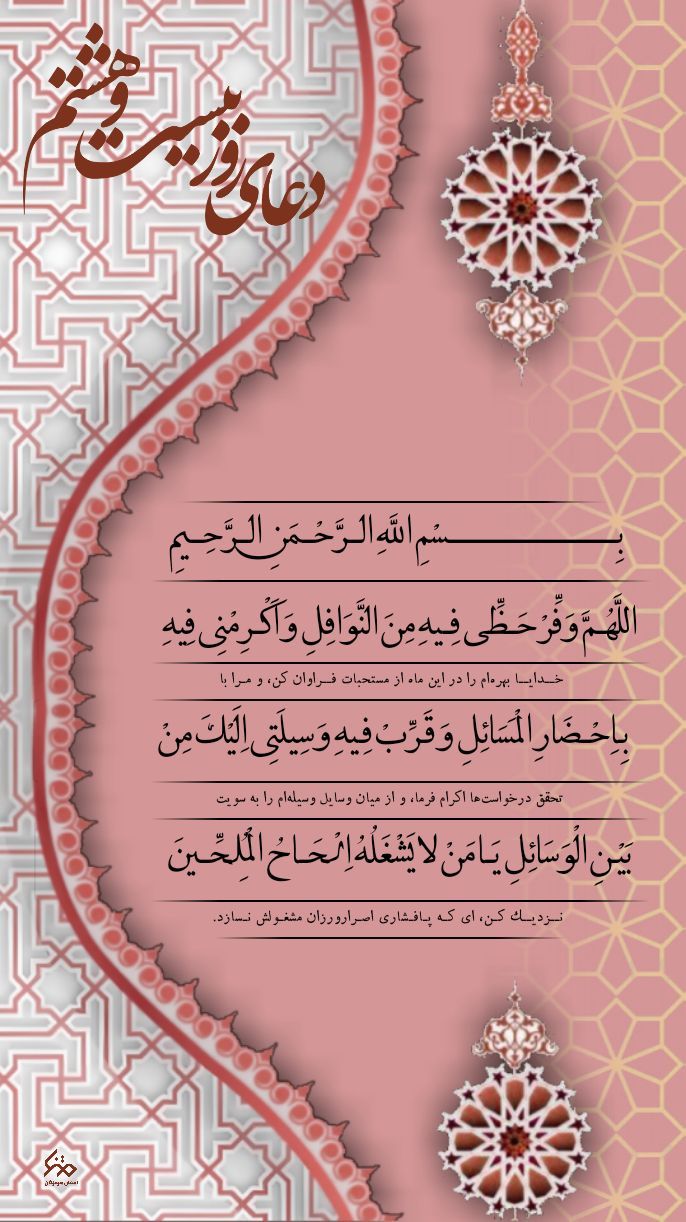 دعای روز بیست و هشتم
بِـسْمِ اللَّهِ الـرَّحْـمَنِ الـرَّحِـیمِ
اللَّهُمَّ وَفِّرْ حَـظِّی فِـیهِ مِنَ النَّوَافِلِ وَ أَكْـرِمْنِی فِیهِ
خـدایـا بهره‌ام را در این ماه از مستحبات فـراوان کن، و مـرا با
بِـإِحْـضَارِ الْمَسَائِلِ وَ قَرِّبْ فِـیهِ وَسِیلَتِی إِلَیْكَ مِنْ
تحقق درخواست‌ها اکرام فرما، و از میان وسایل وسیله‌ام را به سویت
بَیْـنِ الْوَسَائِلِ یَـا مَنْ لا یَشْغَلُهُ إِلْحَـاحُ الْمُلِحِّـینَ
نـزدیـك کـن، ای کـه پـافـشاری اصـرارورزان مشغـولش نـسازد.